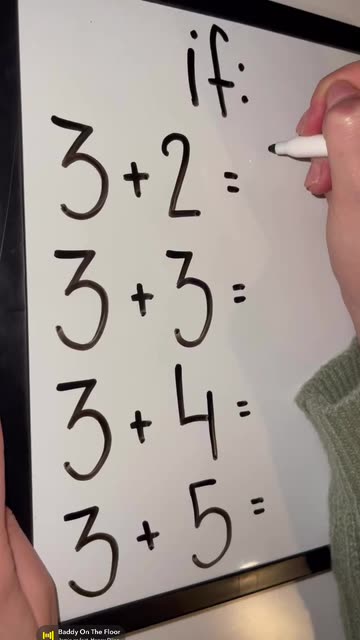 if:
3 + 2 =
3 + 3 =
3 + 4 =
3 + 5 =
Baddy On The Floor